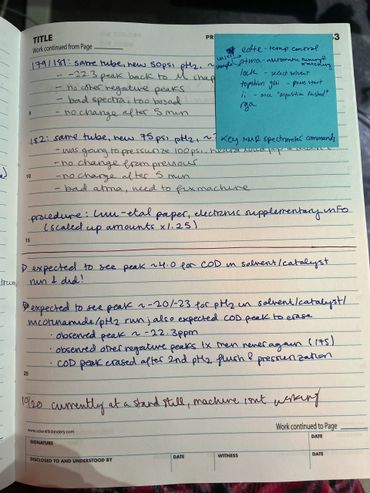 TITLE
Work continued from Page
PR
3
179/181: same tube, new 50psi pH2, ~
- -22.3 peak back to
- no other negative peaks
- bad spectra, too broad
- no change after 5 min
182: same tube, new 75 psi pH2, ~
- was going to pressurize 100 psi,
- no change from previous
- no change after 5 min
- bad atma, need to fix machine
edte - temp control
atma - automatic tuning &
matching
lock - select solvent
topshim gui - press start
ii - once "topshim finished"
rga
key NMR spectrometer commands
procedure: etal paper, electronic supplementary info
(scaled up amounts x1.25)
expected to see peak ~4.0 for COD in solvent/catalyst
run & did!
expected to see peak ~ -20/-23 for pH2 in solvent/catalyst/
nicotinamide/pH2 run; also expected COD peak to erase
· observed peak ~ -22.3ppm
· observed other negative peaks 1x then never again (175)
· COD peak erased after 2nd pH2 flush & pressurization
10/20 currently at a stand still, machine isnt working
www.scientificbindery.com
Work continued to Page
SIGNATURE
DATE
DISCLOSED TO AND UNDERSTOOD BY
DATE
WITNESS
DATE
5
10
15
20
25